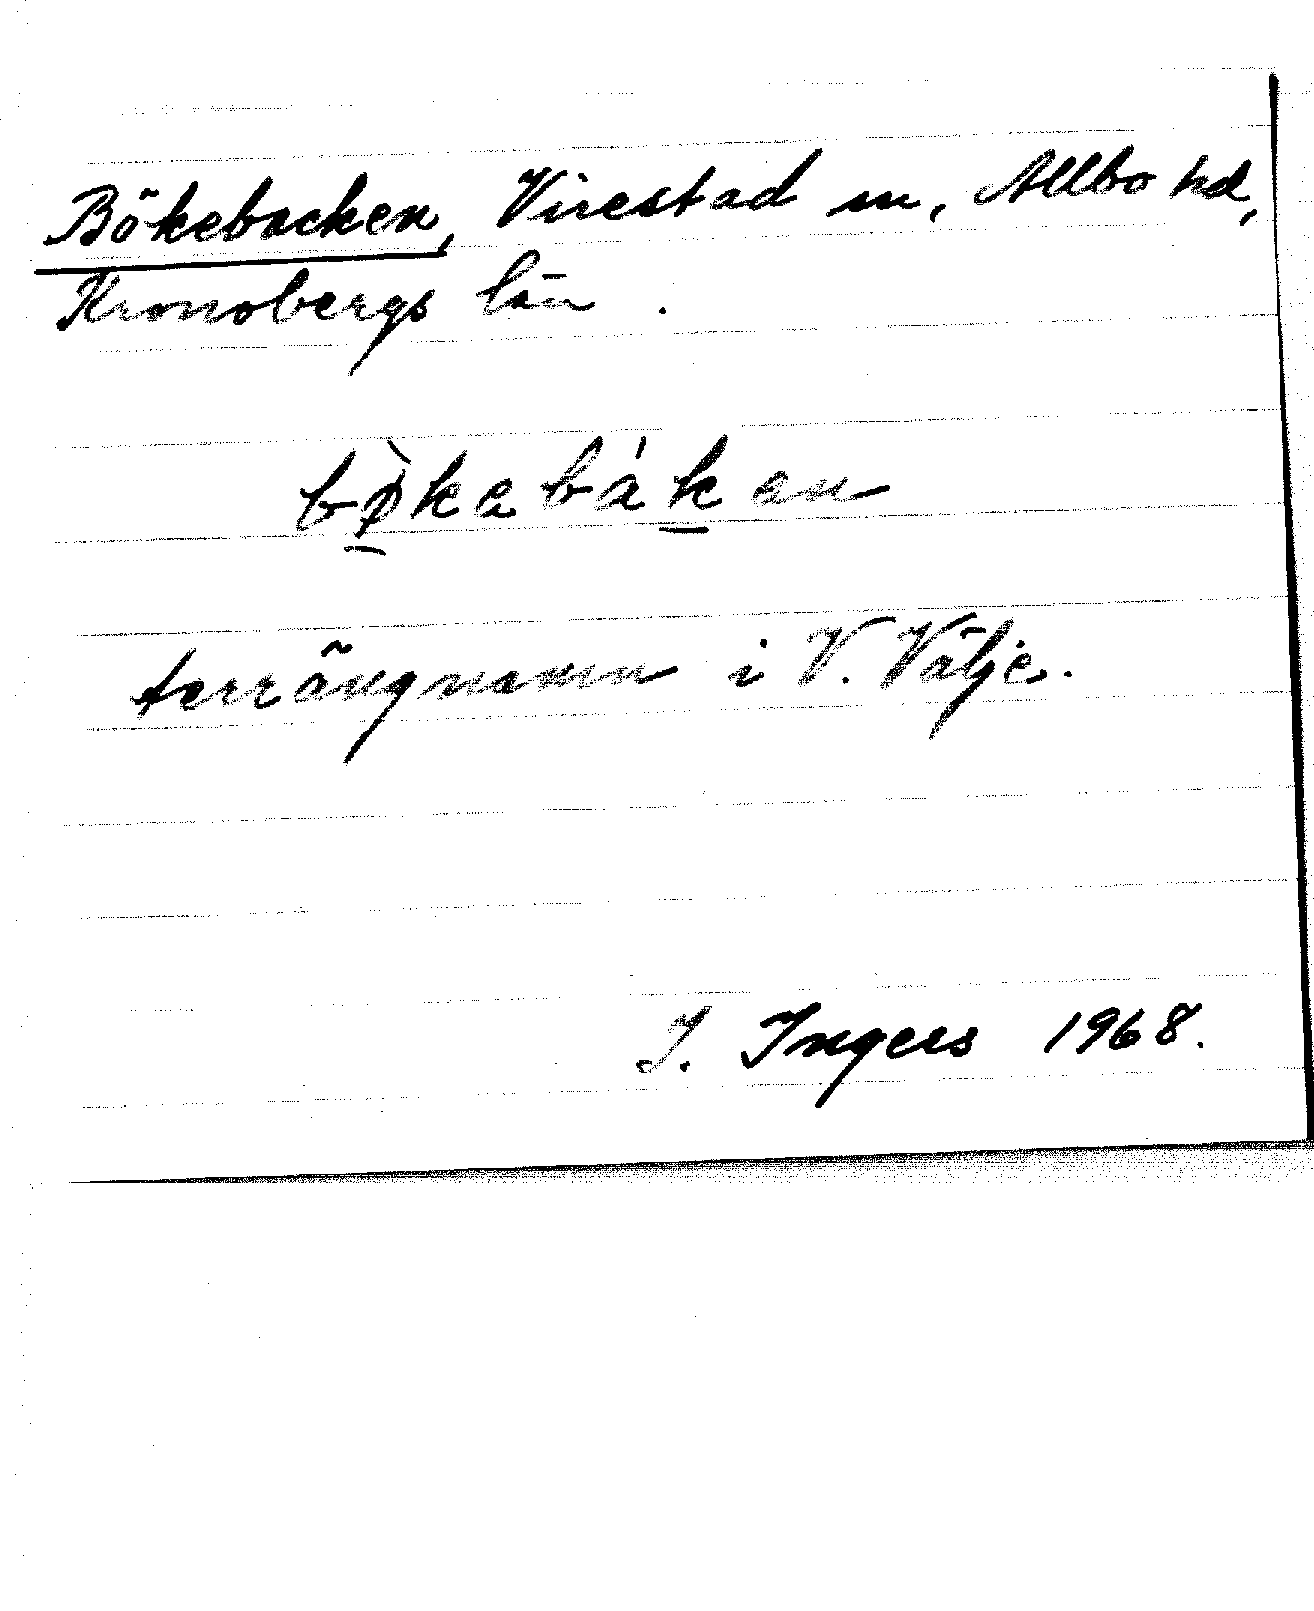 Bökebacken, Virestad sn, Allbo hd,
Kronobergs län.
bø̀kabák̲an
terrängnamn i V. Välje.
I. Ingers 1968.